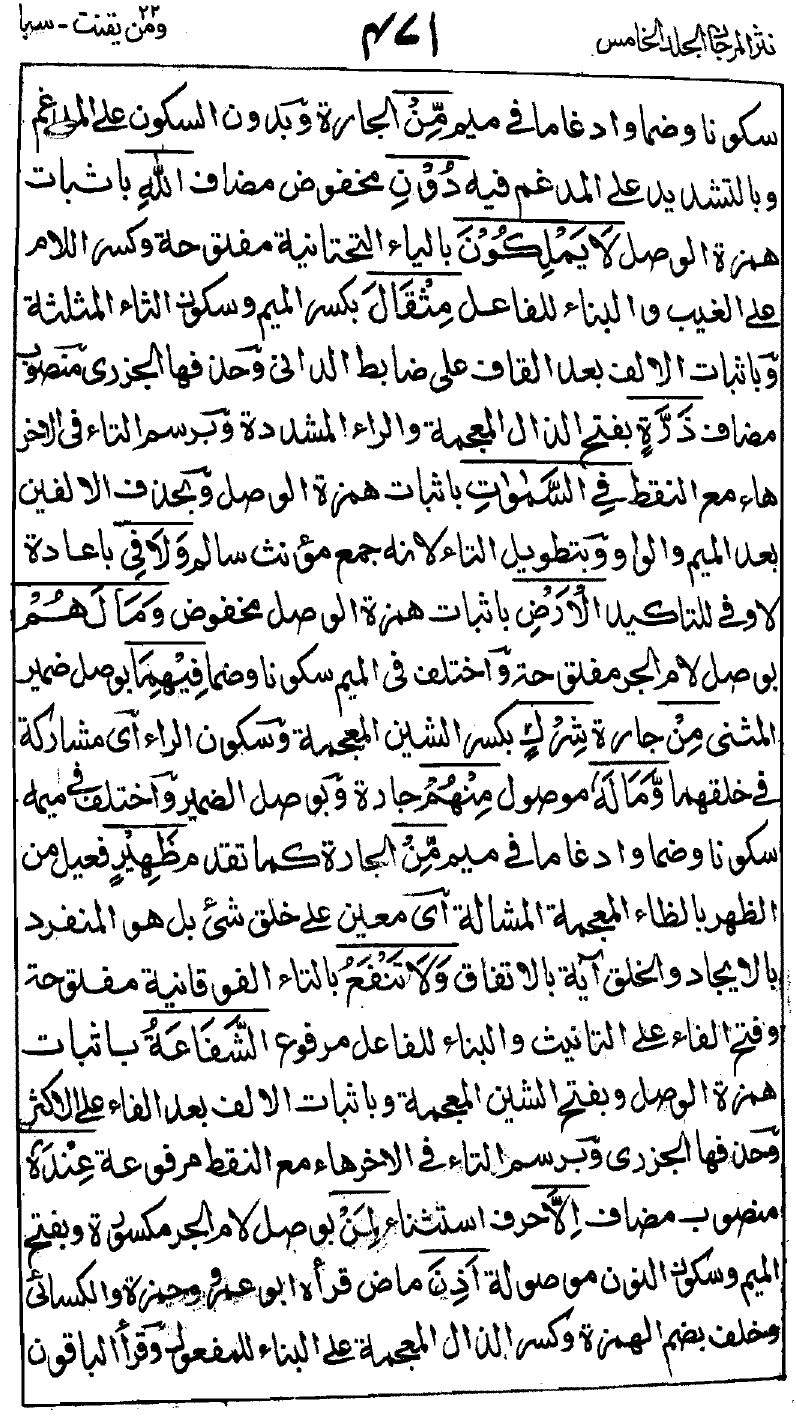 نثر المرجان الجلد الخامس
٤٧١
ومن يقنت ٢٢ - سبا
سكونا وضما وادغاما في ميم مِّنْ الجارة وبدون السكون على المدغم
وبالتشديد على المدغم فيه دُوْنِ مخفوض مضاف اللّٰهِ باثبات
همزة الوصل لَا يَمْلِكُوْنَ بالياء التحتانية مفتوحة وكسر اللام
على الغيب والبناء للفاعل مِثْقَالَ بكسر الميم وسكون الثاء المثلثة
وباثبات الالف بعد القاف على ضابط الداني وحذفها الجزري منصوب
مضاف ذَرَّةٍ بفتح الذال المعجمة والراء المشددة وبرسم التاء في الاخر
هاء مع النقط فِي السَّمٰوٰتِ باثبات همزة الوصل وبحذف الالفين
بعد الميم والواو وبتطويل التاء لانه جمع مؤنث سالم وَلَا فِي باعادة
لا وفي للتاكيد الْاَرْضِ باثبات همزة الوصل مخفوض وَمَا لَهُمْ
بوصل لام الجر مفتوحة واختلف في الميم سكونا وضما فِيْهِمَا بوصل ضمير
المثنى مِنْ جارة شِرْكٍ بكسر الشين المعجمة وسكون الراء اى مشاركة
في خلقهما وَّمَا لَهٗ موصول مِنْهُمْ جارة وبوصل الضمير واختلف في ميمه
سكونا وضما وادغاما في ميم مِّنْ الجارة كما تقدم ظَهِيْرٍ فعيل من
الظهر بالظاء المعجمة المشالة اى معين على خلق شئ بل هو المنفرد
بالايجاد والخلق اية بالاتفاق وَلَا تَنْفَعُ بالتاء الفوقانية مفتوحة
وفتح الفاء على التانيث والبناء للفاعل مرفوع الشَّفَاعَةُ باثبات
همزة الوصل وبفتح الشين المعجمة وباثبات الالف بعد الفاء على الاكثر
وحذفها الجزري وبرسم التاء في الاخر هاء مع النقط مرفوعة عِنْدَهٗ
منصوب مضاف اِلَّا حرف استثناء لِمَنْ بوصل لام الجر مكسورة وبفتح
الميم وسكون النون موصولة اَذِنَ ماض قرأه ابو عمرو وحمزة والكسائي
وخلف بضم الهمزة وكسر الذال المعجمة على البناء للمفعول وقرأ الباقون